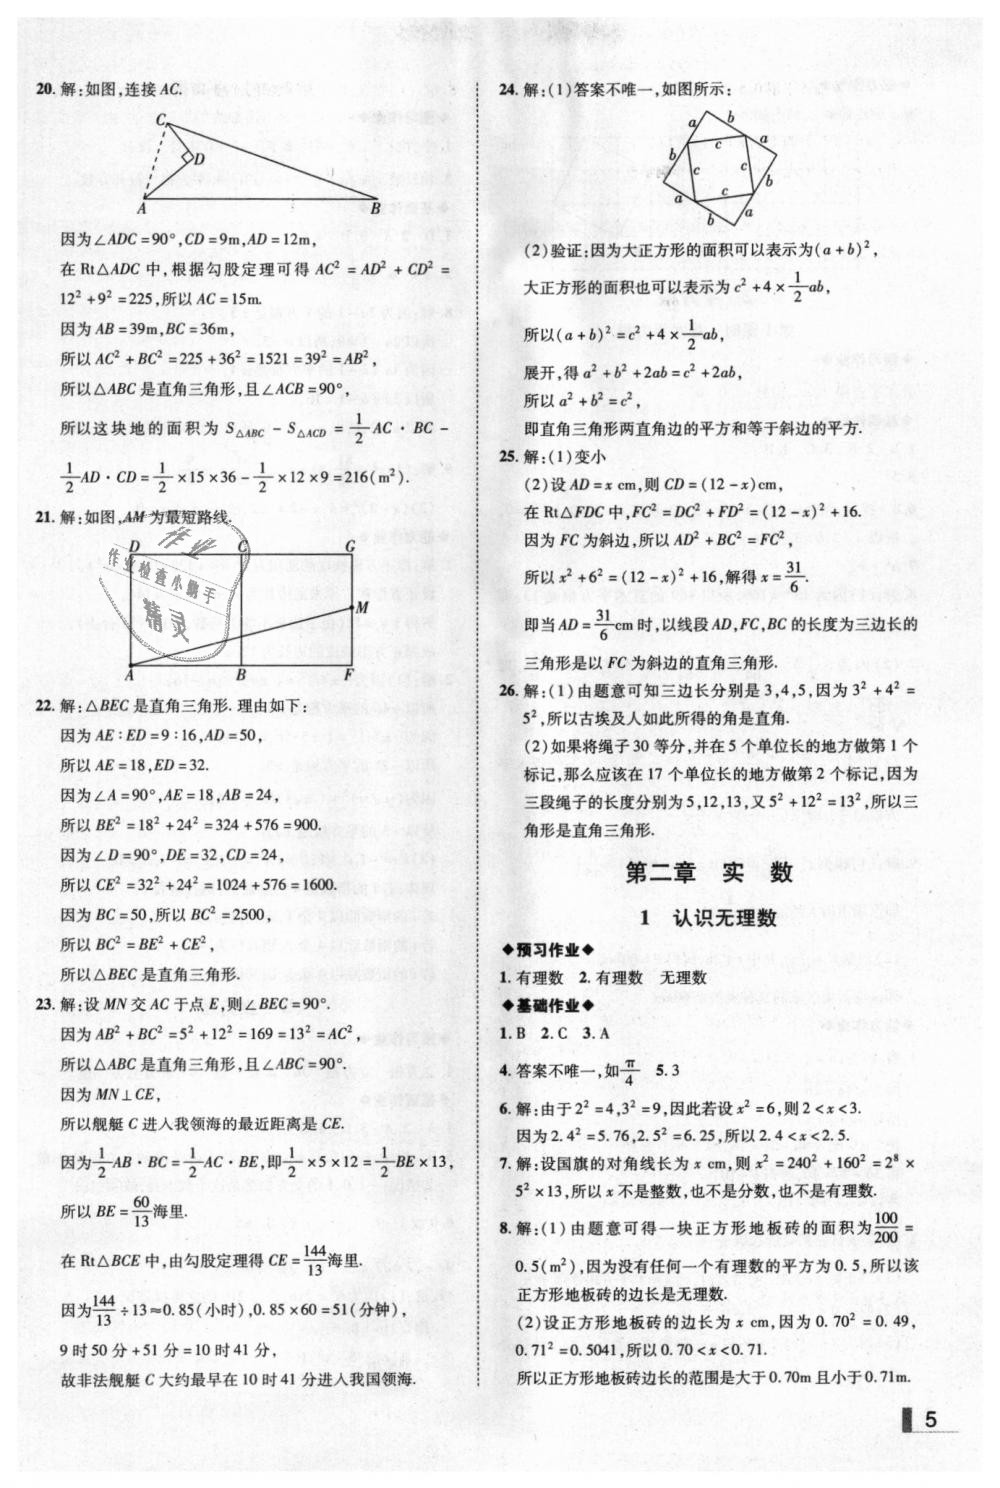 20. 解:如图,连接 AC.
C
D
A
B
因为∠ADC=90°,CD=9m,AD=12m,
在 Rt△ADC 中,根据勾股定理可得 AC²=AD²+CD²=
12²+9²=225,所以 AC=15m.
因为 AB=39m,BC=36m,
所以 AC²+BC²=225+36²=1521=39²=AB²,
所以△ABC 是直角三角形,且∠ACB=90°,
所以这块地的面积为 S△ABC-S△ACD=1/2 AC·BC-
1/2 AD·CD=1/2×15×36-1/2×12×9=216(m²).
21. 解:如图,AM 为最短路线.
D C G
M
A B F
作业
作业检查小助手
精灵
22. 解:△BEC 是直角三角形. 理由如下:
因为 AE:ED=9:16,AD=50,
所以 AE=18,ED=32.
因为∠A=90°,AE=18,AB=24,
所以 BE²=18²+24²=324+576=900.
因为∠D=90°,DE=32,CD=24,
所以 CE²=32²+24²=1024+576=1600.
因为 BC=50,所以 BC²=2500,
所以 BC²=BE²+CE²,
所以△BEC 是直角三角形.
23. 解:设 MN 交 AC 于点 E,则∠BEC=90°.
因为 AB²+BC²=5²+12²=169=13²=AC²,
所以△ABC 是直角三角形,且∠ABC=90°.
因为 MN⊥CE,
所以舰艇 C 进入我领海的最近距离是 CE.
因为1/2 AB·BC=1/2 AC·BE,即1/2×5×12=1/2 BE×13,
所以 BE=60/13海里.
在 Rt△BCE 中,由勾股定理得 CE=144/13海里.
因为144/13÷13≈0.85(小时),0.85×60=51(分钟),
9 时 50 分+51 分=10 时 41 分,
故非法舰艇 C 大约最早在 10 时 41 分进入我国领海.
24. 解:(1)答案不唯一,如图所示:
b
a a
b c
c c b
a c
b a
(2)验证:因为大正方形的面积可以表示为(a+b)²,
大正方形的面积也可以表示为 c²+4×1/2 ab,
所以(a+b)²=c²+4×1/2 ab,
展开,得 a²+b²+2ab=c²+2ab,
所以 a²+b²=c²,
即直角三角形两直角边的平方和等于斜边的平方.
25. 解:(1)变小
(2)设 AD=x cm,则 CD=(12-x)cm,
在 Rt△FDC 中,FC²=DC²+FD²=(12-x)²+16.
因为 FC 为斜边,所以 AD²+BC²=FC²,
所以 x²+6²=(12-x)²+16,解得 x=31/6.
即当 AD=31/6 cm 时,以线段 AD,FC,BC 的长度为三边长的
三角形是以 FC 为斜边的直角三角形.
26. 解:(1)由题意可知三边长分别是 3,4,5,因为 3²+4²=
5²,所以古埃及人如此所得的角是直角.
(2)如果将绳子 30 等分,并在 5 个单位长的地方做第 1 个
标记,那么应该在 17 个单位长的地方做第 2 个标记,因为
三段绳子的长度分别为 5,12,13,又 5²+12²=13²,所以三
角形是直角三角形.
第二章 实 数
1 认识无理数
◆预习作业◆
1. 有理数 2. 有理数 无理数
◆基础作业◆
1. B 2. C 3. A
4. 答案不唯一,如π/4 5. 3
6. 解:由于 2²=4,3²=9,因此若设 x²=6,则 2<x<3.
因为 2.4²=5.76,2.5²=6.25,所以 2.4<x<2.5.
7. 解:设国旗的对角线长为 x cm,则 x²=240²+160²=2⁸×
5²×13,所以 x 不是整数,也不是分数,也不是有理数.
8. 解:(1)由题意可得一块正方形地板砖的面积为100/200=
0.5(m²),因为没有任何一个有理数的平方为 0.5,所以该
正方形地板砖的边长是无理数.
(2)设正方形地板砖的边长为 x cm,因为 0.70²=0.49,
0.71²=0.5041,所以 0.70<x<0.71.
所以正方形地板砖边长的范围是大于 0.70m 且小于 0.71m.
5